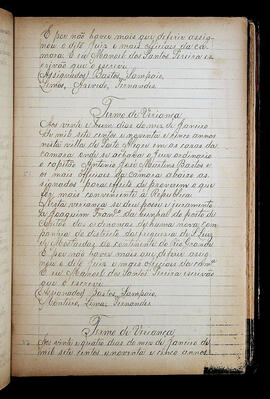 E por não haver mais que deferir assig-
nou o dito Juiz e mais officiaes da ca-
mara. E eu Manoel dos Santos Pereira es-
crivão que o escrevi
(Assignados) Bastos, Sampaio,
Lemos, Azevedo, Fernandes

Termo de Vereança
Aos vinte e hum dias do mez de Janeiro
de mil sete centos e noventa e cinco annos
nesta villa de Porto Alegre em as casas da
camara onde se achava o Juiz ordinario
o capitão Antonio José Martins Bastos e
os mais officiaes da camara abaixo as-
signados para effeito de proverem o que
for mais conveniente à Republica.
Nesta vereança se deu posse e juramento
a Joaquim Franco da no posto de
Capitão das ordenanças de huma nova com-
panhia do districto da freguezia de S. Luiz
de Mostardas do continente do Rio Grande
E por não haver mais que deferir assig-
nou o dito Juiz e mais officiaes da camara
E eu Manoel dos Santos Pereira escrivão
que o escrevi
(Assignados) Bastos, Sampaio,
Monteiro, Lima, Fernandes

Termo de Vereança
Aos vinte e quatro dias do mez de Janeiro de
mil sete centos e noventa e cinco annos